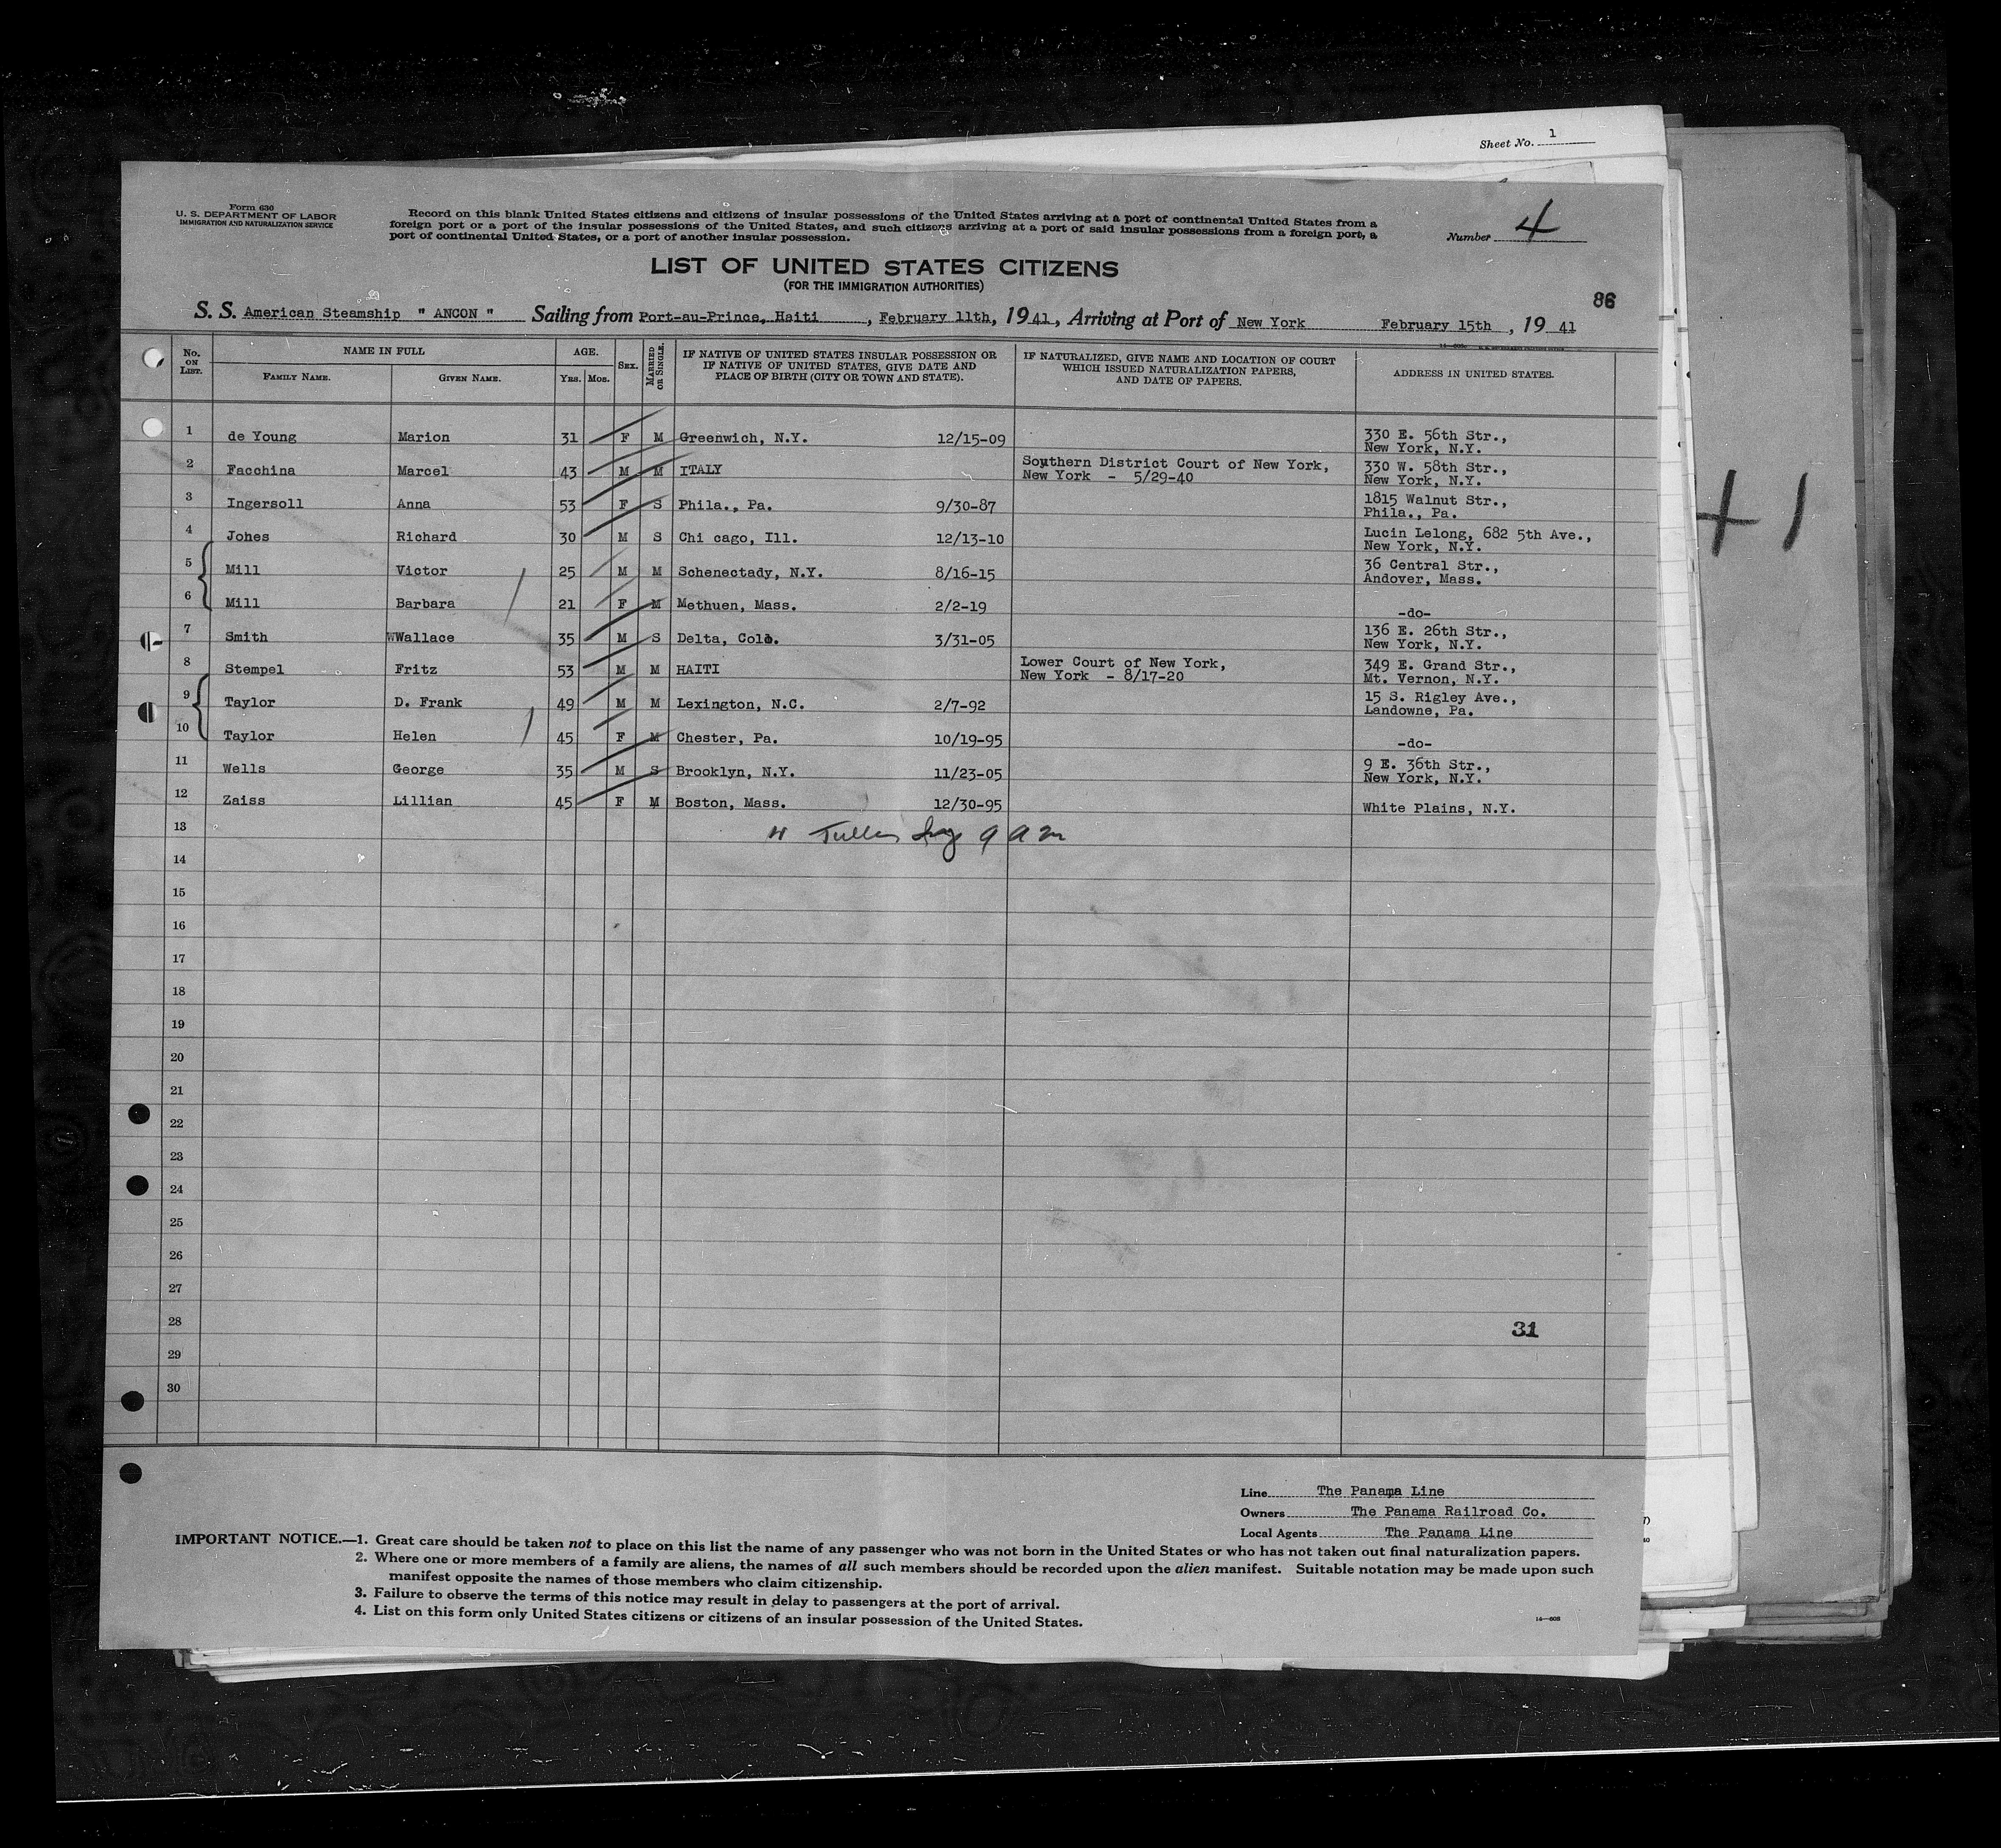 Sheet No. 1
Form 630
U. S. DEPARTMENT OF LABOR
IMMIGRATION AND NATURALIZATION SERVICE
Record on this blank United States citizens and citizens of insular possessions of the United States arriving at a port of continental United States from a
foreign port or a port of the insular possessions of the United States, and such citizens arriving at a port of said insular possessions from a foreign port, a
port of continental United States, or a port of another insular possession.
Number 4
LIST OF UNITED STATES CITIZENS
(FOR THE IMMIGRATION AUTHORITIES)
86
S. S. American Steamship " ANCON " Sailing from Port-au-Prince, Haiti, February 11th, 1941, Arriving at Port of New York February 15th, 1941
No. ON LIST. NAME IN FULL FAMILY NAME. GIVEN NAME. AGE. YRS. MOS. SEX. MARRIED OR SINGLE. IF NATIVE OF UNITED STATES INSULAR POSSESSION OR IF NATIVE OF UNITED STATES, GIVE DATE AND PLACE OF BIRTH (CITY OR TOWN AND STATE). IF NATURALIZED, GIVE NAME AND LOCATION OF COURT WHICH ISSUED NATURALIZATION PAPERS, AND DATE OF PAPERS. ADDRESS IN UNITED STATES.
1 de Young Marion 31 F M Greenwich, N.Y. 12/15-09 330 E. 56th Str.,
New York, N.Y.
2 Facchina Marcel 43 M M ITALY Southern District Court of New York, 330 W. 58th Str.,
New York - 5/29-40 New York, N.Y.
3 Ingersoll Anna 53 F S Phila., Pa. 9/30-87 1815 Walnut Str.,
Phila., Pa.
4 Johes Richard 30 M S Chi cago, Ill. 12/13-10 Lucin Lelong, 682 5th Ave.,
New York, N.Y.
5 Mill Victor 25 M M Schenectady, N.Y. 8/16-15 36 Central Str.,
Andover, Mass.
6 Mill Barbara 21 F M Methuen, Mass. 2/2-19 -do-
7 Smith WWallace 35 M S Delta, Colo. 3/31-05 136 E. 26th Str.,
New York, N.Y.
8 Stempel Fritz 53 M M HAITI Lower Court of New York, 349 E. Grand Str.,
New York - 8/17-20 Mt. Vernon, N.Y.
9 Taylor D. Frank 49 M M Lexington, N.C. 2/7-92 15 S. Rigley Ave.,
Landowne, Pa.
10 Taylor Helen 45 F M Chester, Pa. 10/19-95 -do-
11 Wells George 35 M S Brooklyn, N.Y. 11/23-05 9 E. 36th Str.,
New York, N.Y.
12 Zaiss Lillian 45 F M Boston, Mass. 12/30-95 White Plains, N.Y.
13
14
15
16
17
18
19
20
21
22
23
24
25
26
27
28
31
29
30
41
Line The Panama Line
Owners The Panama Railroad Co.
Local Agents The Panama Line
IMPORTANT NOTICE.—1. Great care should be taken not to place on this list the name of any passenger who was not born in the United States or who has not taken out final naturalization papers.
2. Where one or more members of a family are aliens, the names of all such members should be recorded upon the alien manifest. Suitable notation may be made upon such
manifest opposite the names of those members who claim citizenship.
3. Failure to observe the terms of this notice may result in delay to passengers at the port of arrival.
4. List on this form only United States citizens or citizens of an insular possession of the United States.